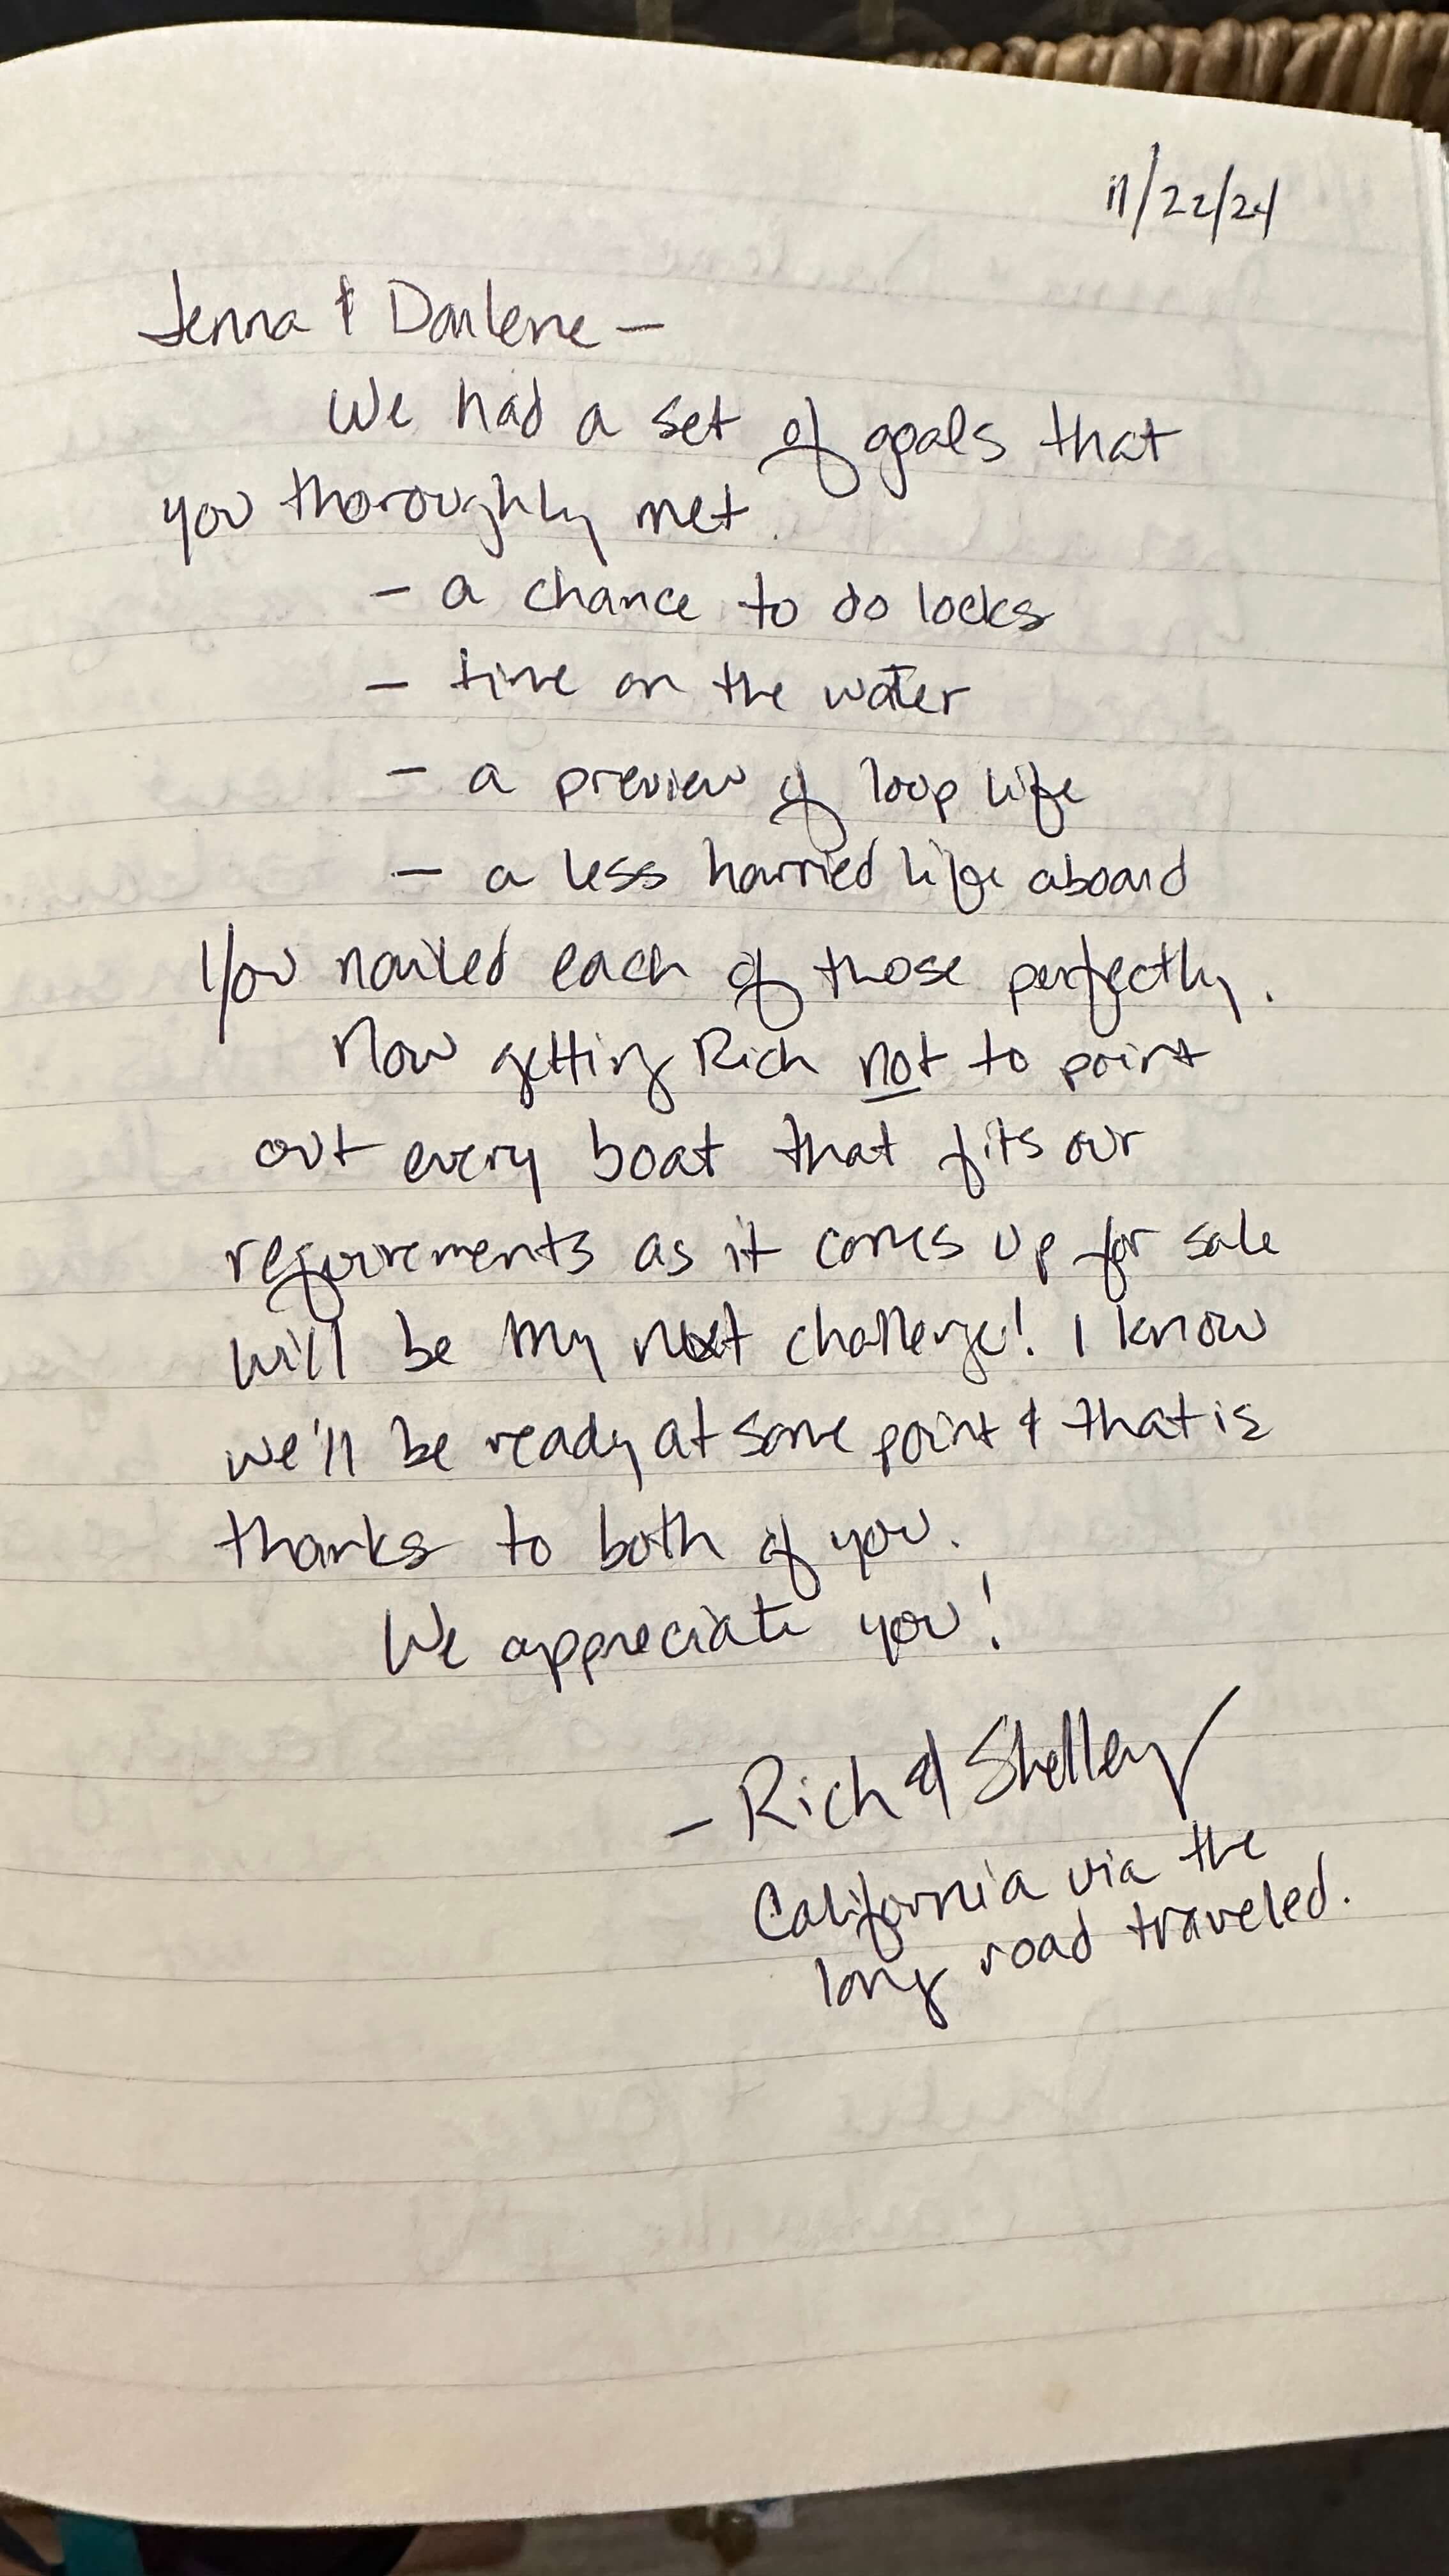 11/22/24
Jenna & Darlene —
We had a set of goals that
you thoroughly met.
— a chance to do locks
— time on the water
— a preview of loop life
— a less harried life aboard
You nailed each of those perfectly.
Now getting Rich not to point
out every boat that fits our
requirements as it comes up for sale
will be my next challenge! I know
we'll be ready at some point & that is
thanks to both of you.
We appreciate you!
— Rich & Shelley
California via the
long road traveled.